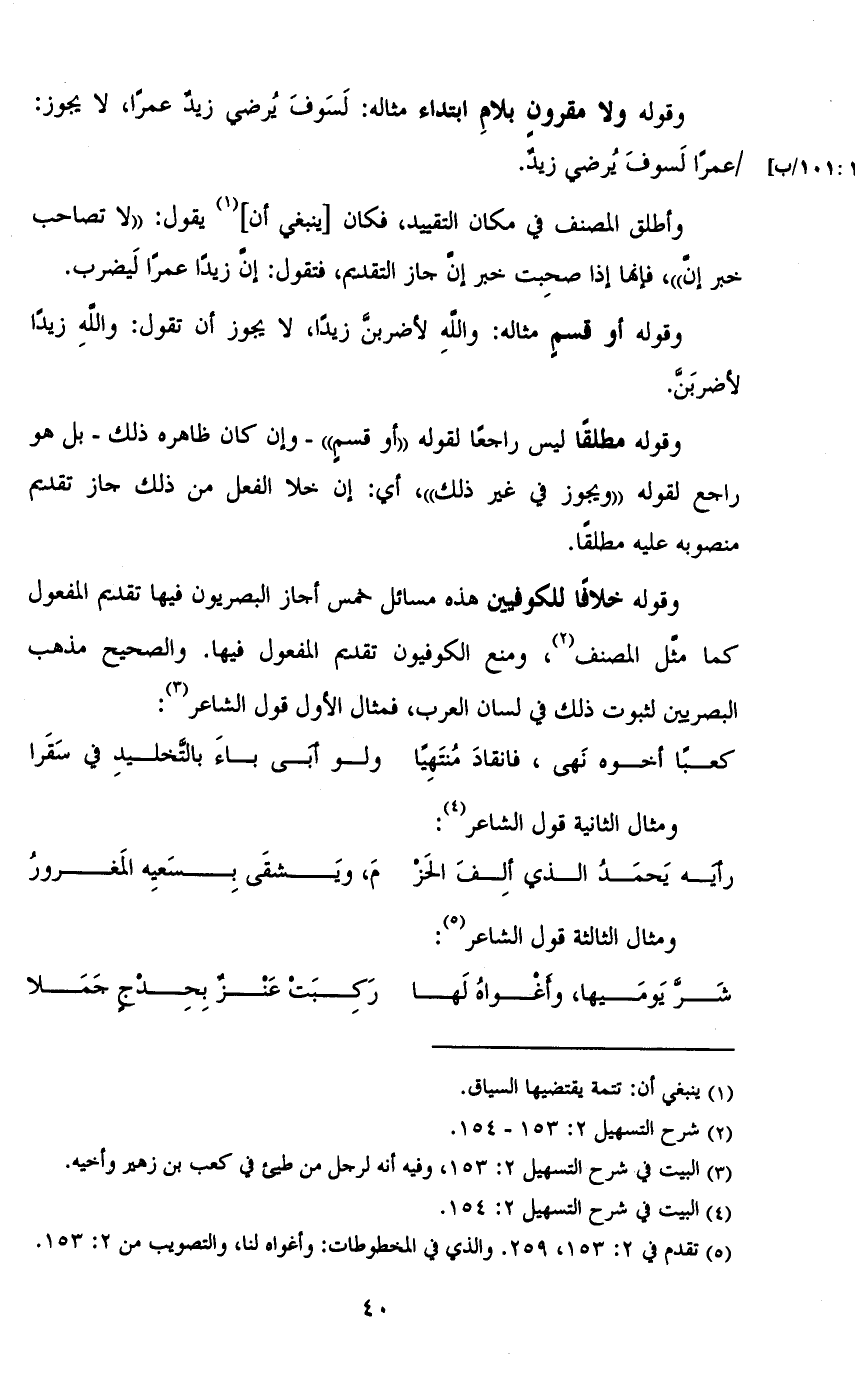 وقوله ولا مقرونٍ بلامِ ابتداء مثاله: لَسَوفَ يُرضي زيدٌ عمرًا، لا يجوز:
١٠١:١/ب] /عمرًا لَسوفَ يُرضي زيدٌ.
وأطلق المصنف في مكان التقييد، فكان [ينبغي أن](١) يقول: «لا تصاحب
خبر إنَّ»، فإنها إذا صحبت خبر إنَّ جاز التقديم، فتقول: إنَّ زيدًا عمرًا لَيضرب.
وقوله أو قسمٍ مثاله: واللَّهِ لأضربنَّ زيدًا، لا يجوز أن تقول: واللَّهِ زيدًا
لأضربَنَّ.
وقوله مطلقًا ليس راجعًا لقوله «أو قسمٍ» - وإن كان ظاهره ذلك - بل هو
راجع لقوله «ويجوز في غير ذلك»، أي: إن خلا الفعل من ذلك جاز تقديم
منصوبه عليه مطلقًا.
وقوله خلافًا للكوفيين هذه مسائل خمس أجاز البصريون فيها تقديم المفعول
كما مثَّل المصنف(٢)، ومنع الكوفيون تقديم المفعول فيها. والصحيح مذهب
البصريين لثبوت ذلك في لسان العرب، فمثال الأول قول الشاعر(٣):
كعبًا أخوه نَهى ، فانقادَ مُنتَهِيًا ولو أبَى باءَ بالتَّخليدِ في سَقَرا
ومثال الثانية قول الشاعر(٤):
رأيَه يَحمَدُ الذي ألِفَ الحَزْ مَ، ويَشقَى بِسَعيِه المَغرورُ
ومثال الثالثة قول الشاعر(٥):
شَرَّ يَومَيها، وأَغْواهُ لَها رَكِبَتْ عَنْزٌ بِحِدْجٍ جَمَلا
(١) ينبغي أن: تتمة يقتضيها السياق.
(٢) شرح التسهيل ٢: ١٥٣ - ١٥٤.
(٣) البيت في شرح التسهيل ٢: ١٥٣، وفيه أنه لرجل من طيئ في كعب بن زهير وأخيه.
(٤) البيت في شرح التسهيل ٢: ١٥٤.
(٥) تقدم في ٢: ١٥٣، ٢٥٩. والذي في المخطوطات: وأغواه لنا، والتصويب من ٢: ١٥٣.
٤٠